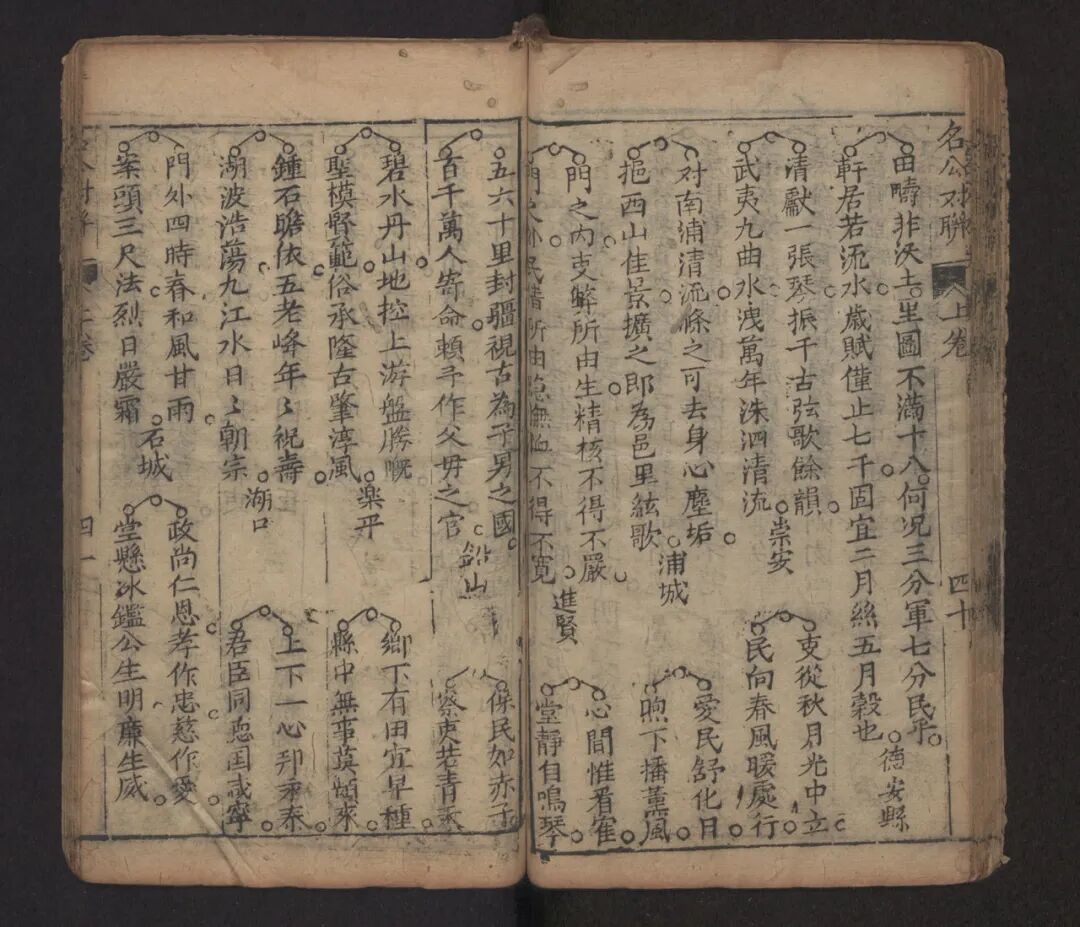 名公对聯 上卷 四十
田疇非沃土生圖不滿十八何况三分軍七分民乎
軒居若流水歲賦僅止七千固宜二月絲五月穀也 德安縣
清獻一張琴振千古弦歌餘韻
武夷九曲水洩萬年洙泗清流 崇安
吏從秋月光中立
民向春風暖處行
对南浦清流滌之可去身心塵垢
挹西山佳景擴之即為邑里絃歌 浦城
愛民舒化日
煦下播薰風
門之内吏弊所由生精核不得不嚴
門之外民情所由 不得不寬 進賢
心間惟看寉
堂靜自鳴琴
五六十里封疆視古為子男之國
百千萬人寄命賴予作父毋之官 鉛山
保民如赤子
察吏若青
碧水丹山地控上游盤勝槪
聖模賢範俗承隆古肇淳風 楽平
鄉下有田宜早種
縣中無事莫頻來
鍾石瞻依五老峰年〻祝壽
湖波浩蕩九江水日〻朝宗 湖口
上下一心邦永泰
君臣同悳国咸寧
門外四時春和風甘雨
案頭三尺法烈日嚴霜 石城
政尚仁恩孝作忠慈作愛
堂懸冰鑑公生明亷生威
四一